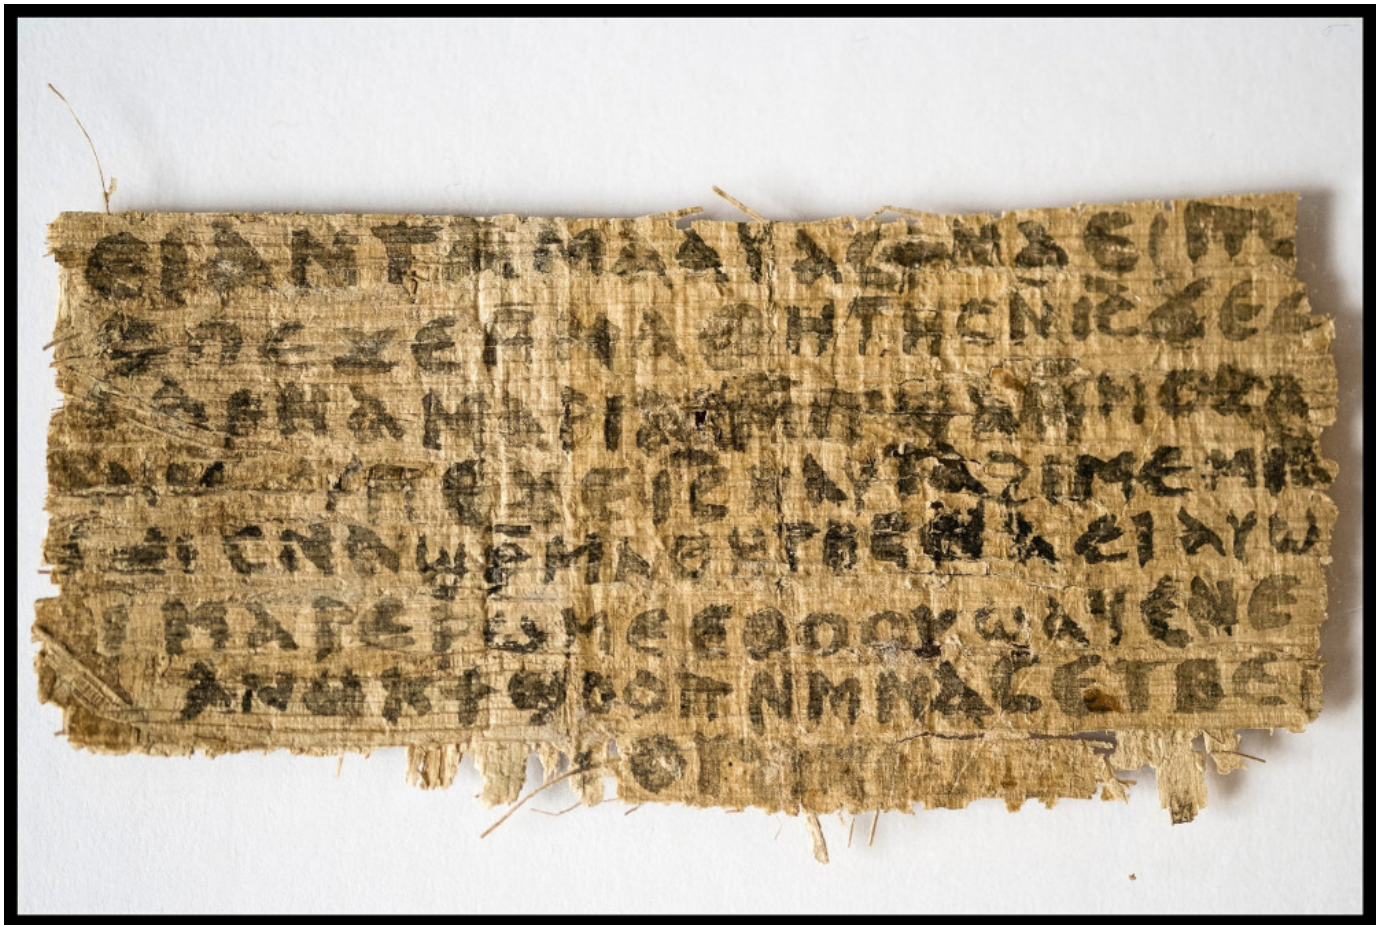 ⲉⲓ ⲁⲛ ⲧⲁⲙⲁⲁⲩ ⲁⲥϯ ⲛⲁⲉⲓ ⲡⲱ
ⲡⲉϫⲉ ⲙⲙⲁⲑⲏⲧⲏⲥ ⲛⲓ̅ⲥ̅ ϫⲉ ⲥ
ⲁⲣⲛⲁ ⲙⲁⲣⲓⲁⲙ ⲙⲡϣⲁ ⲙⲙⲟⲥ ⲁ
ⲡⲉϫⲉ ⲓ̅ⲥ̅ ⲛⲁⲩ ⲧⲁϩⲓⲙⲉ ⲙⲛ
ⲥⲛⲁϣⲣ̅ⲙⲁⲑⲏⲧⲏⲥ ⲛⲁⲉⲓ ⲁⲩⲱ
ⲙⲁⲣⲉⲣⲱⲙⲉ ⲉⲑⲟⲟⲩ ϣⲁϥⲉ ⲛⲉ
ⲁⲛⲟⲕ ϯϣⲟⲟⲡ ⲛⲙⲙⲁⲥ ⲉⲧⲃⲉ